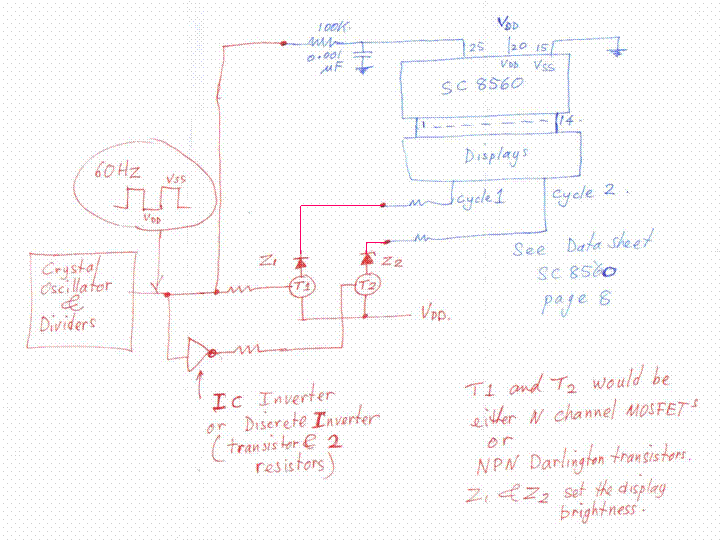 100K.
0.001
µF
VDD
25
20
15
VDD
VSS
SC 8560
1
14.
Displays
cycle 1
cycle 2.
60Hz
VSS
VDD
Z1
Z2
T1
T2
VDD.
See Data sheet
SC 8560
page 8
Crystal
Oscillator
&
Dividers
IC Inverter
or Discrete Inverter
(transistor & 2
resistors)
T1 and T2 would be
either N channel MOSFETs
or
NPN Darlington transistors.
Z1 & Z2 set the display
brightness.